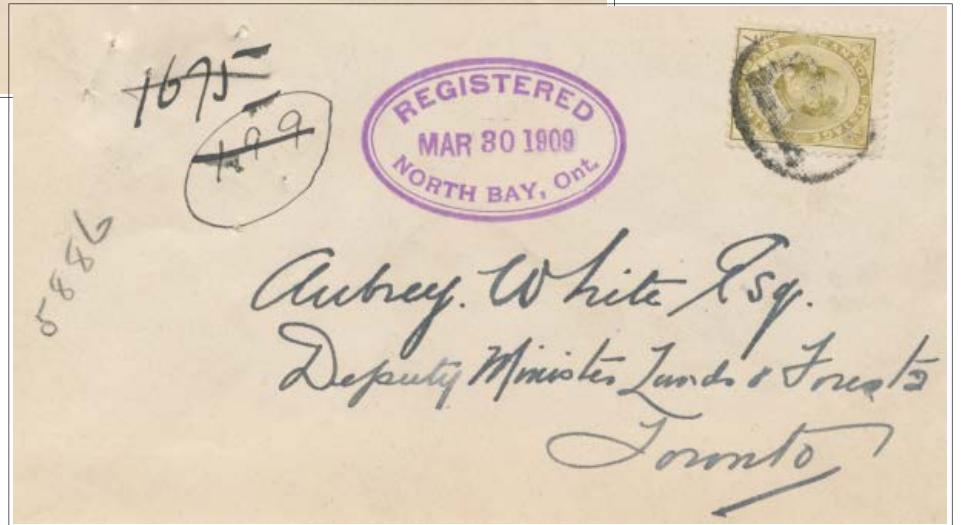 1675
199
5886
REGISTERED
MAR 30 1909
NORTH BAY, Ont.
CANADA POSTAGE
Aubrey. White Esq.
Deputy Minister Lands & Forests
Toronto